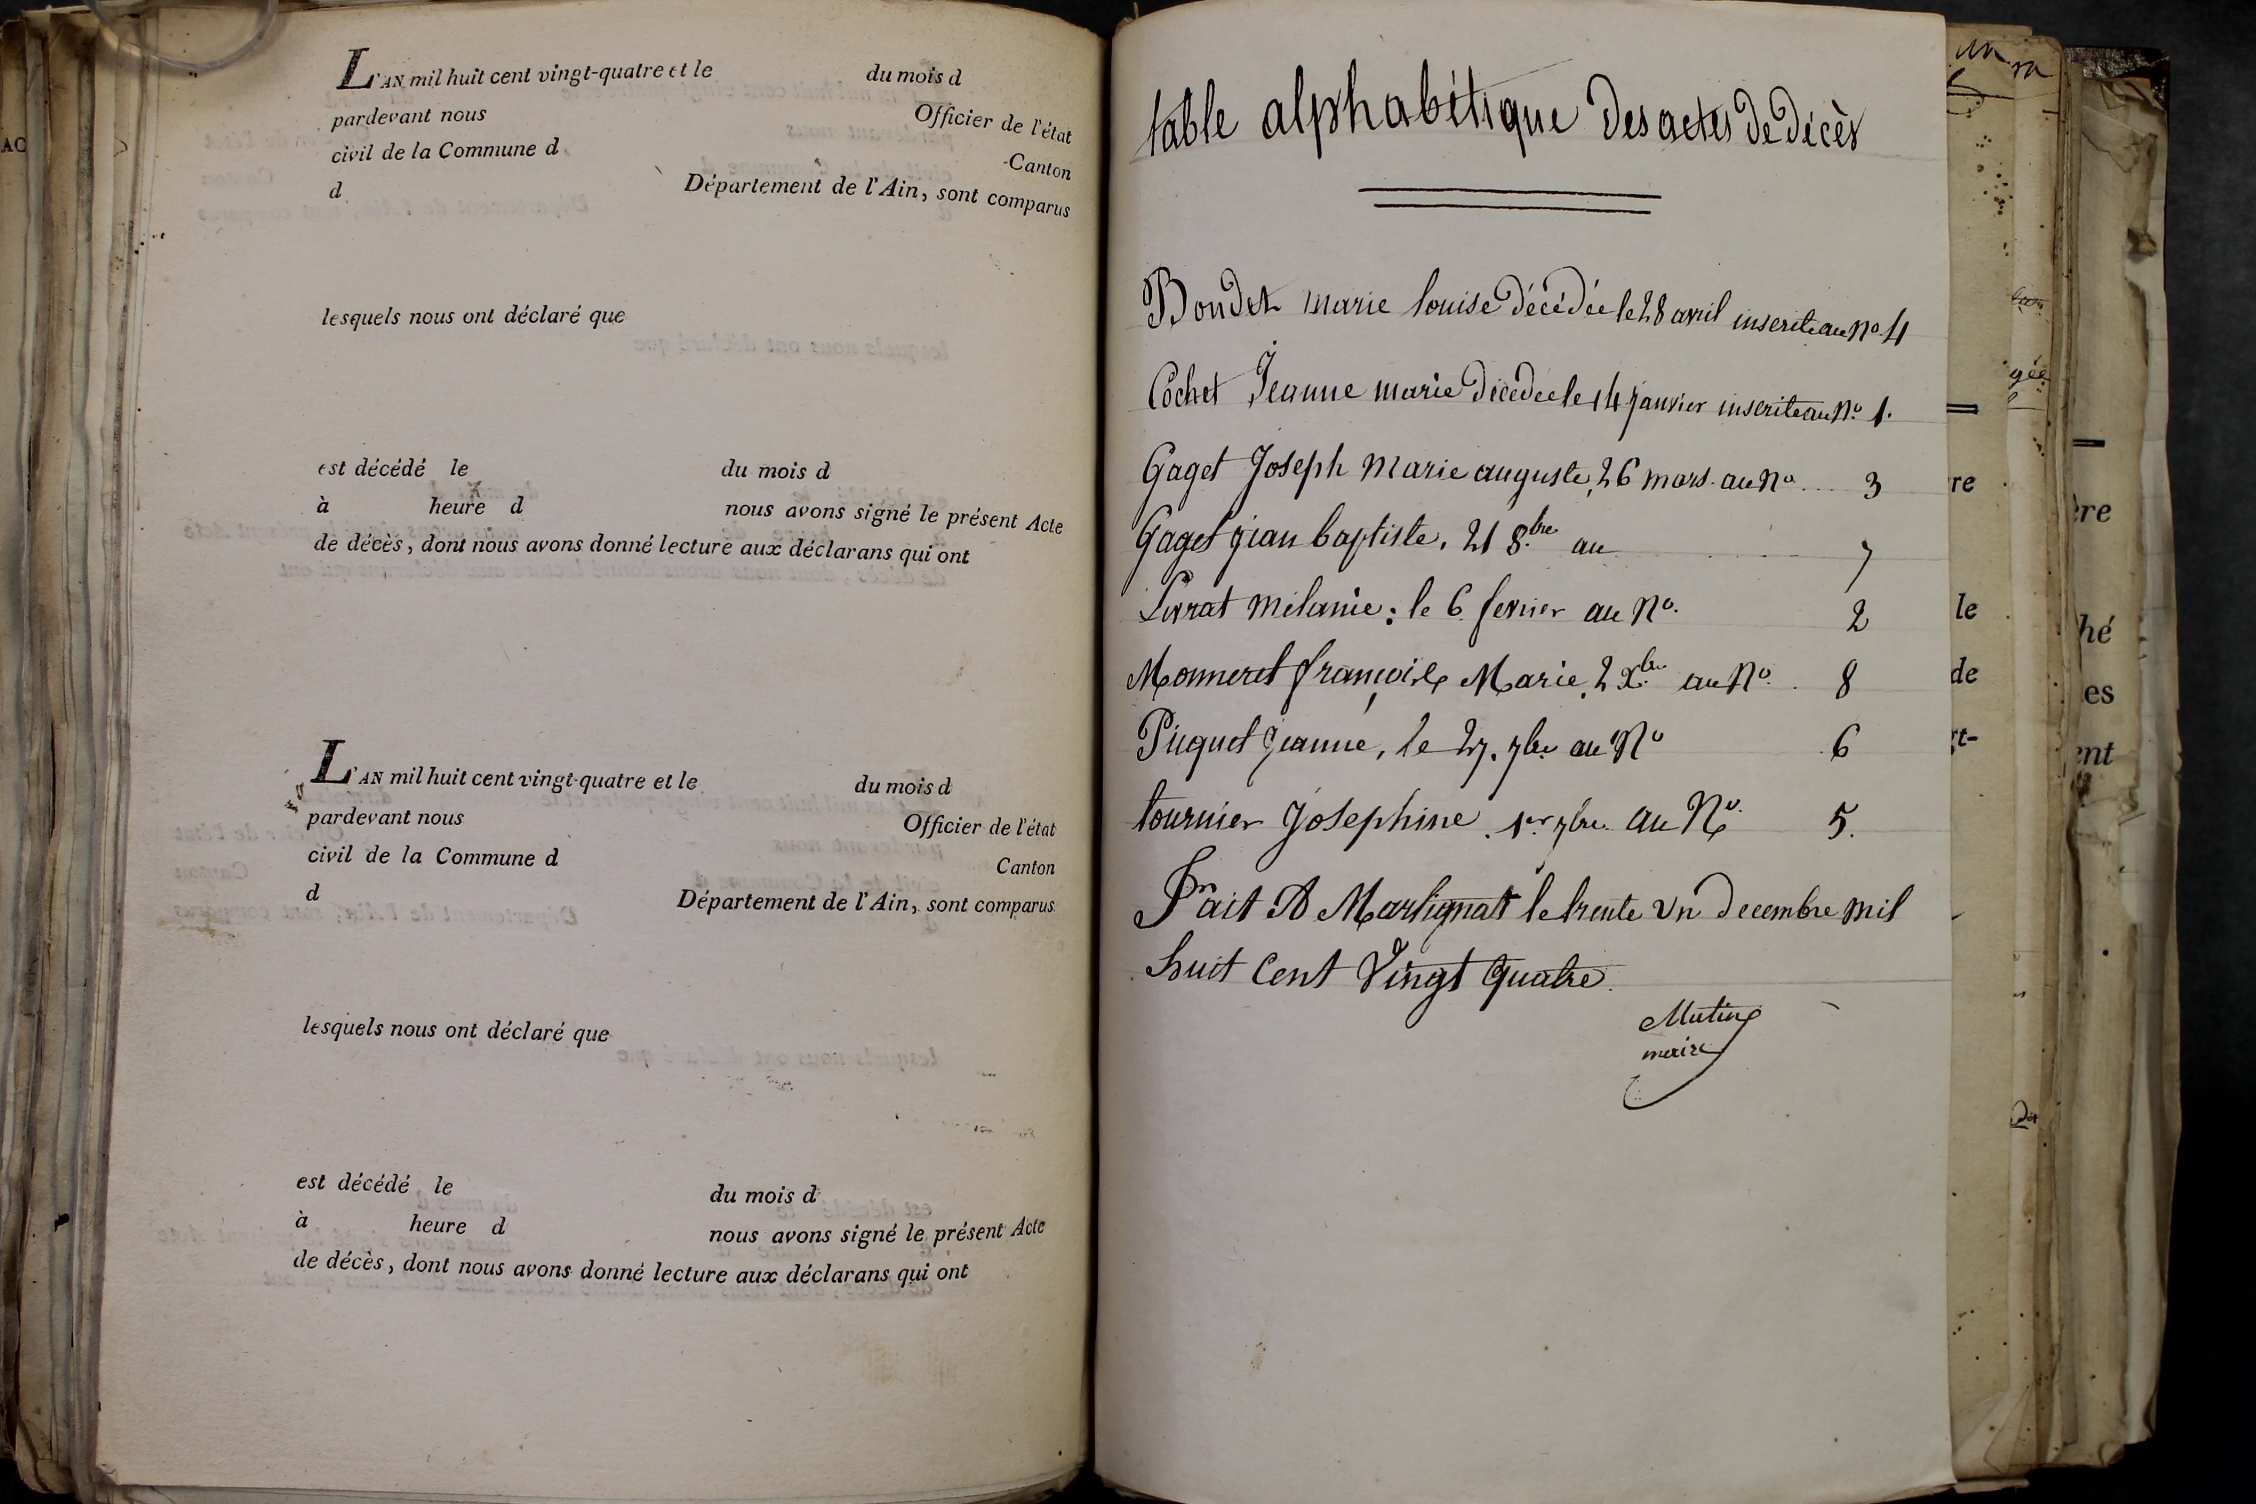 L'AN mil huit cent vingt-quatre et le du mois d
pardevant nous Officier de l'état
civil de la Commune d Canton
d Département de l'Ain, sont comparus
lesquels nous ont déclaré que
est décédé le du mois d
à heure d nous avons signé le présent Acte
de décès, dont nous avons donné lecture aux déclarans qui ont
L'AN mil huit cent vingt-quatre et le du mois d
pardevant nous Officier de l'état
civil de la Commune d Canton
d Département de l'Ain, sont comparus
lesquels nous ont déclaré que
est décédé le du mois d
à heure d nous avons signé le présent Acte
de décès, dont nous avons donné lecture aux déclarans qui ont
table alphabétique des actes de décès
Bondet marie louise décédée le 28 avril inscrite au No. 4
Cochet Jeanne marie décédée le 14 janvier inscrite au No. 1.
Gaget Joseph Marie auguste, 26 mars. au No 3
Gaget jean baptiste. 21 8.bre au 7
Livrat mélanie: le 6. fevrier au No. 2
Monneret françoise Marie. 2 X.bre au No. 8
Piquet jeanne, le 27. 7bre au No 6
tournier josephine. 1er 7bre. au No. 5.
Fait A Martignat le trente un decembre mil
huit cent Vingt quatre.
Mutin
maire